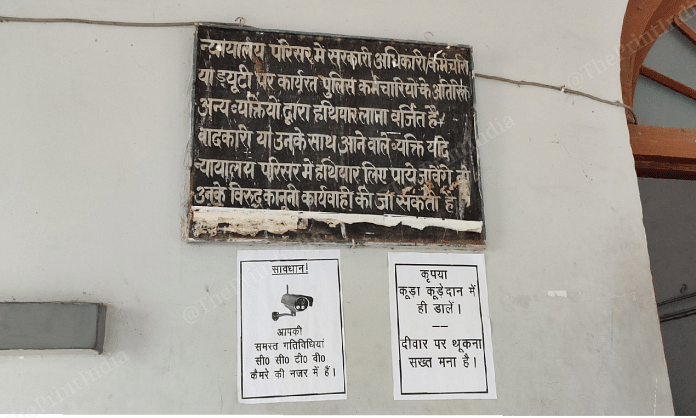 न्यायालय परिसर में सरकारी अधिकारी/कर्मचारी
या ड्यूटी पर कार्यरत पुलिस कर्मचारियों के अतिरिक्त
अन्य व्यक्तियों द्वारा हथियार लाना वर्जित है।
वादकारी या उनके साथ आने वाले व्यक्ति यदि
न्यायालय परिसर में हथियार लिए पाये जावेंगे तो
उनके विरुद्ध कानूनी कार्यवाही की जा सकती है
सावधान!
आपकी
समस्त गतिविधियां
सी0 सी0 टी0 वी0
कैमरे की नजर में हैं।
कृपया
कूड़ा कूड़ेदान में
ही डालें।
—
दीवार पर थूकना
सख्त मना है।
@ThePrintIndia